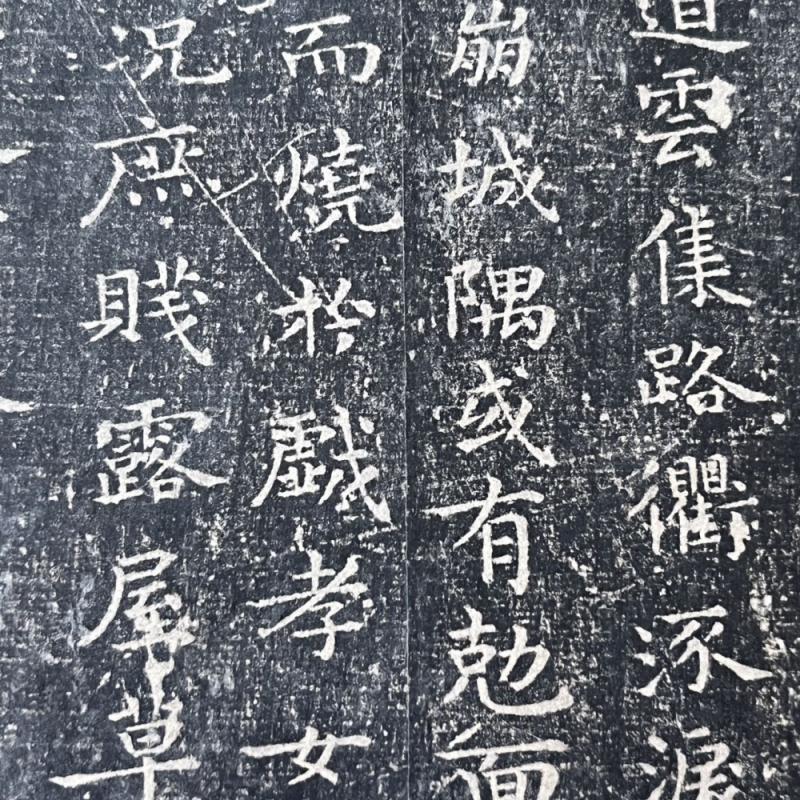 道雲集路衢流淚
崩城隅或有勊面
而燒於戲孝女
況庶賤露屋草